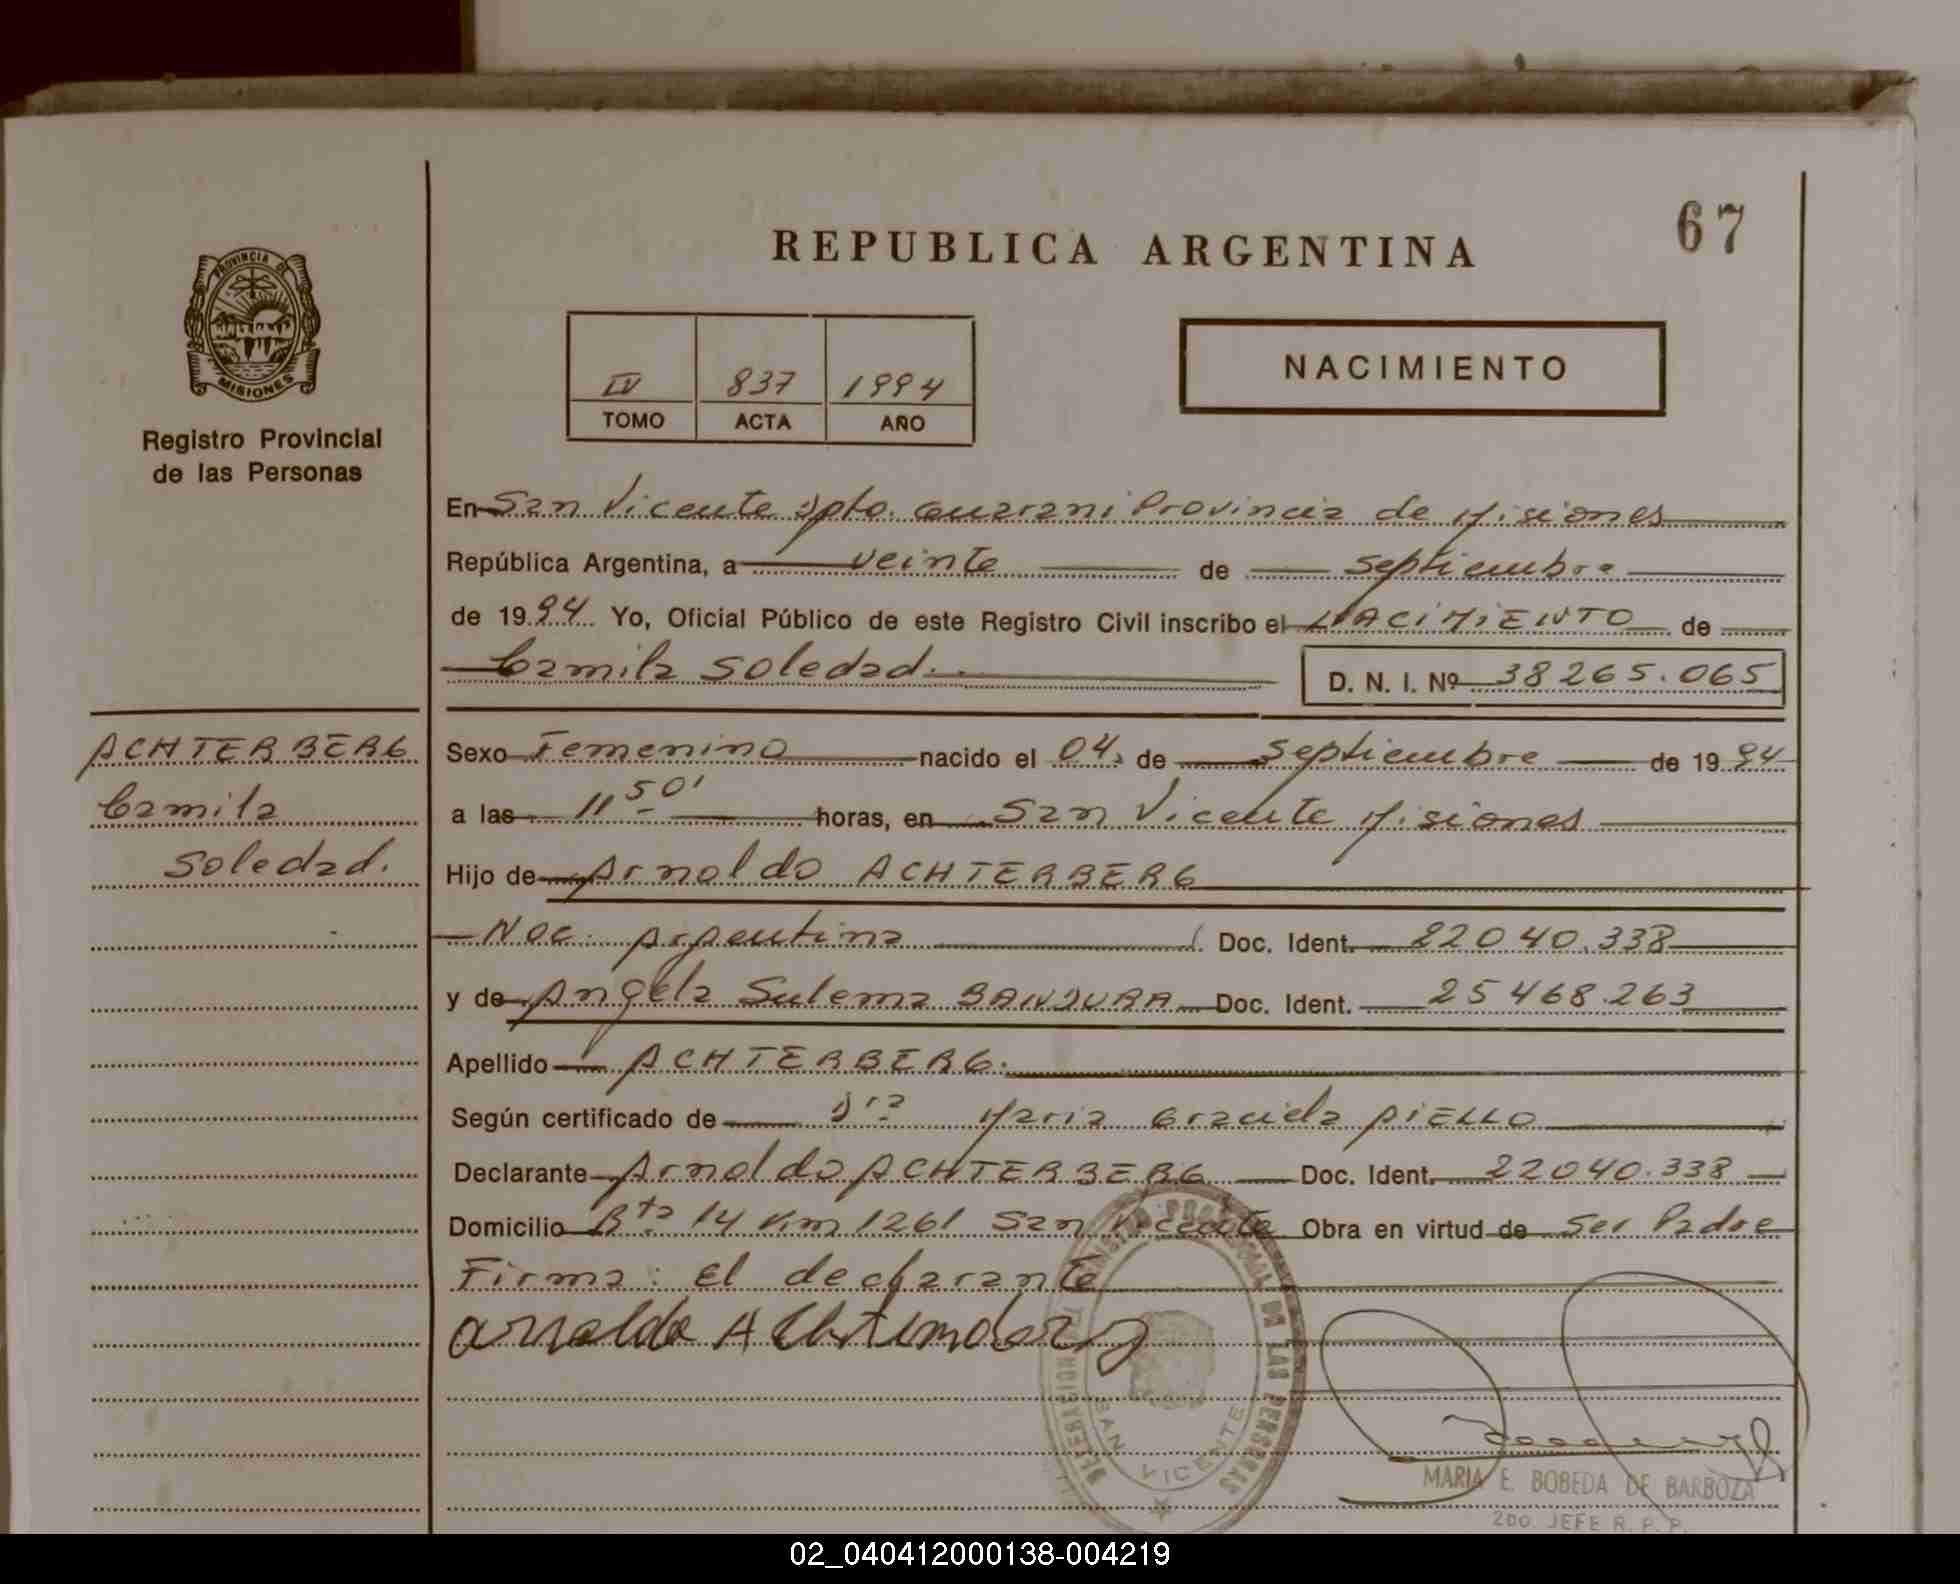 REPUBLICA ARGENTINA
67
PROVINCIA DE
MISIONES
Registro Provincial
de las Personas
IV 837 1994
TOMO ACTA AÑO
NACIMIENTO
En San Vicente Dpto. Guarani Provincia de Misiones
República Argentina, a veinte de Septiembre
de 1994 Yo, Oficial Público de este Registro Civil inscribo el NACIMIENTO de
Camila Soledad. D. N. I. Nº 38265.065
ACHTERBERG
Camila
Soledad.
Sexo Femenino nacido el 04 de Septiembre de 1994
a las 11 50' horas, en San Vicente Misiones
Hijo de Arnoldo ACHTERBERG
Nac. Argentina Doc. Ident. 22040.338
y de Angela Sulema BANDURA Doc. Ident. 25468.263
Apellido ACHTERBERG.
Según certificado de Dra Maria Graciela PIELLO
Declarante Arnoldo ACHTERBERG Doc. Ident. 22040.338
Domicilio Rta 14 Km 1261 San Vicente Obra en virtud de Ser Padre
Firma: El declarante
Arnoldo
SAN VICENTE
MARIA E. BOBEDA DE BARBOZA
2DO. JEFE R. P. P.
02_040412000138-004219